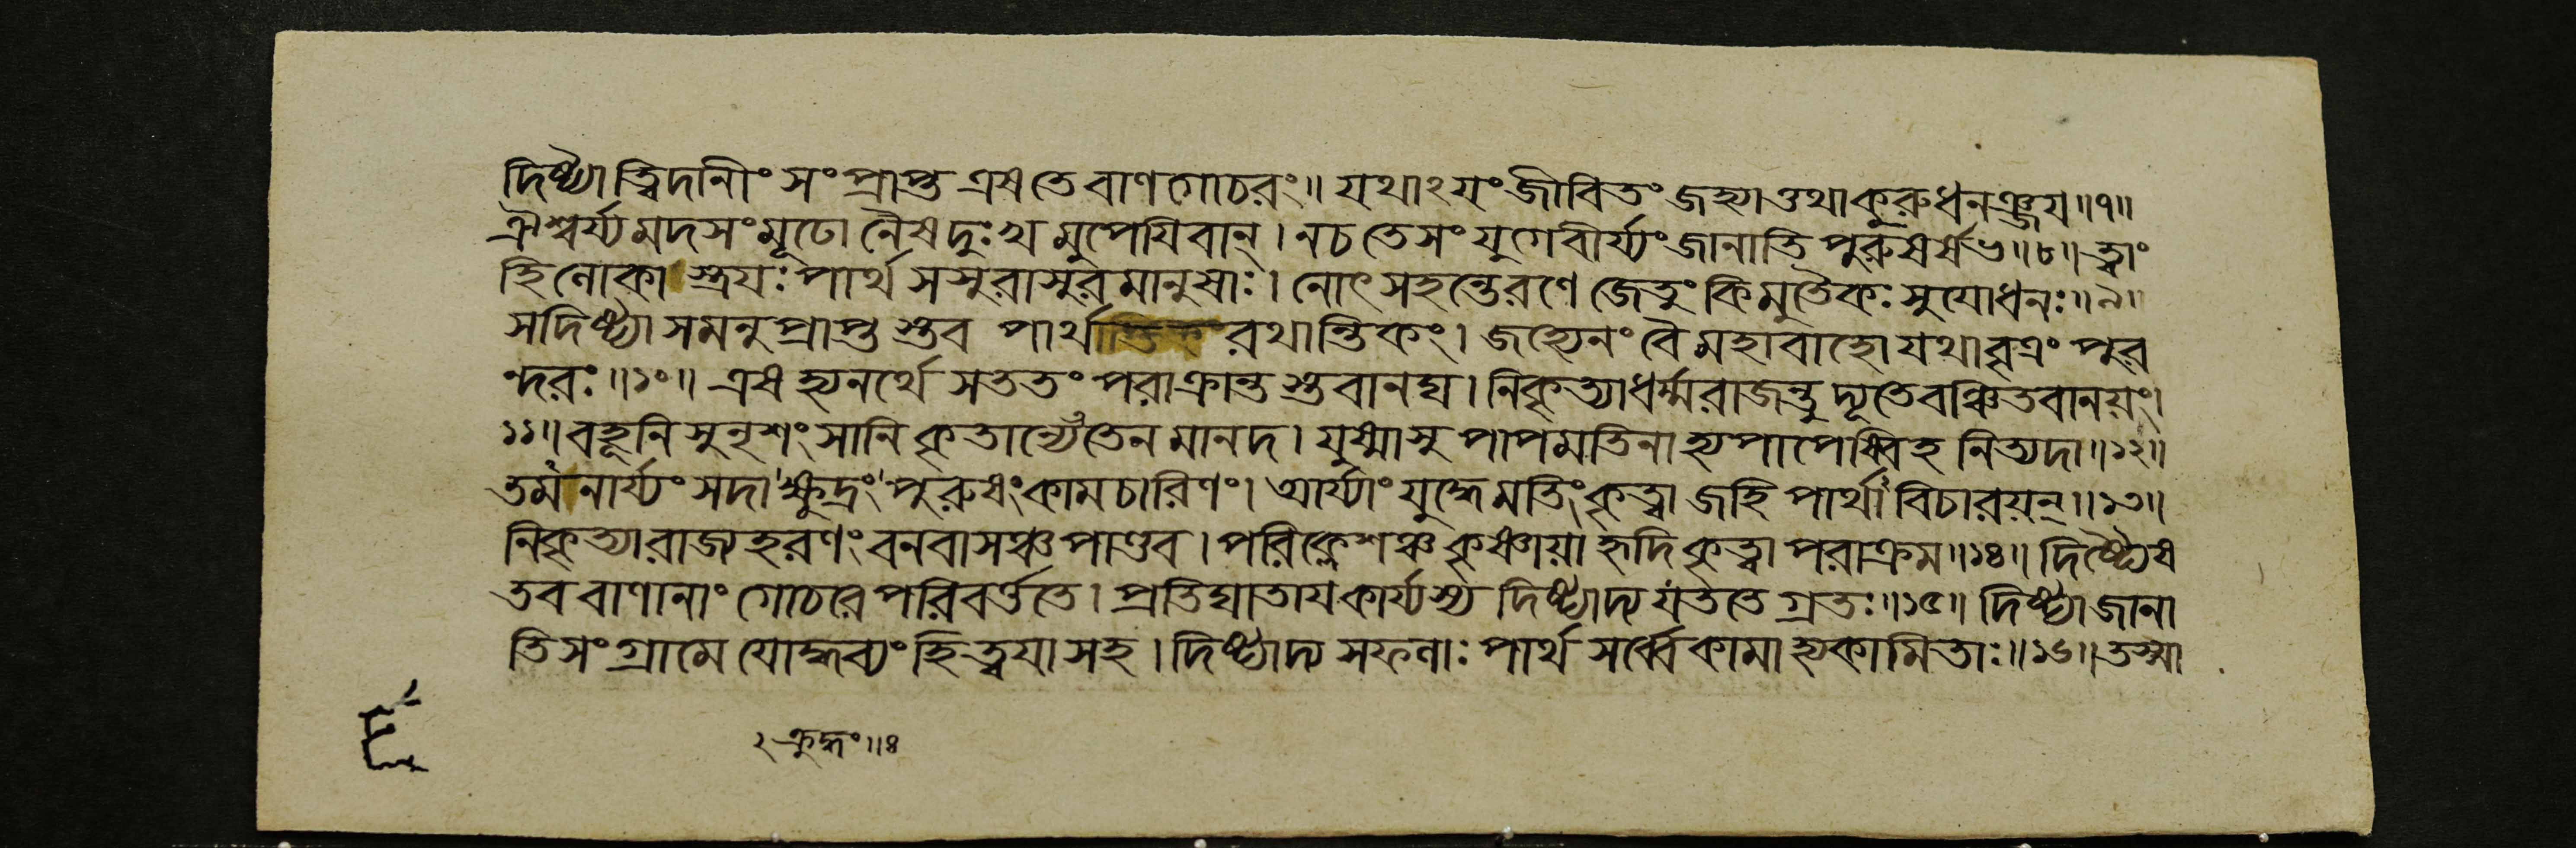 দিষ্ট্যা ত্বিদানীং সংপ্রাপ্ত এষ তে বাণগোচরং॥ যথাঽয়ং জীবিতং জহ্যাত্তথা কুরু ধনঞ্জয়॥৭॥
ঐশ্বর্য্যমদসংমূঢো নৈষ দুঃখমুপেয়িবান্। ন চ তে সংযুগে বীর্য্যং জানাতি পুরুষর্ষভ॥৮॥ ত্বাং
হি লোকাস্ত্রয়ঃ পার্থ সসুরাসুরমানুষাঃ। নোৎসহন্তে রণে জেতুং কিমুতৈকঃ সুযোধনঃ॥৯॥
স দিষ্ট্যা সমনুপ্রাপ্তস্তব পার্থ রথান্তিকং। জহ্যেনং বৈ মহাবাহো যথা বৃত্রং পুর
ন্দরঃ॥১০॥ এষ হ্যনর্থে সততং পরাক্রান্তস্তবানঘ। নিকৃত্যা ধর্ম্মরাজন্তু দ্যূতে বঞ্চিতবানয়ং।
১১॥ বহূনি সুনৃশংসানি কৃতান্যেতেন মানদ। যুষ্মাসু পাপমতিনা হ্যপাপেষ্বিহ নিত্যদা॥১২॥
তমনার্য্যং সদা ক্ষুদ্রং পুরুষং কামচারিণং। আর্য্যাং যুদ্ধে মতিং কৃত্বা জহি পার্থাবিচারয়ন্॥১৩॥
নিকৃত্যা রাজ্যহরণং বনবাসঞ্চ পাণ্ডব। পরিক্লেশঞ্চ কৃষ্ণায়া হৃদি কৃত্বা পরাক্রম॥১৪॥ দিষ্ট্যৈষ
তব বাণানাং গোচরে পরিবর্ত্ততে। প্রতিঘাতায় কার্য্যস্য দিষ্ট্যা চ যততে গ্রতঃ॥১৫॥ দিষ্ট্যা জানা
তি সংগ্রামে যোদ্ধব্যং হি ত্বয়া সহ। দিষ্ট্যা চ সফলাঃ পার্থ সর্ব্বে কামা হ্যকামিতাঃ॥১৬॥ তস্মা
২ ক্রুদ্ধং॥৪